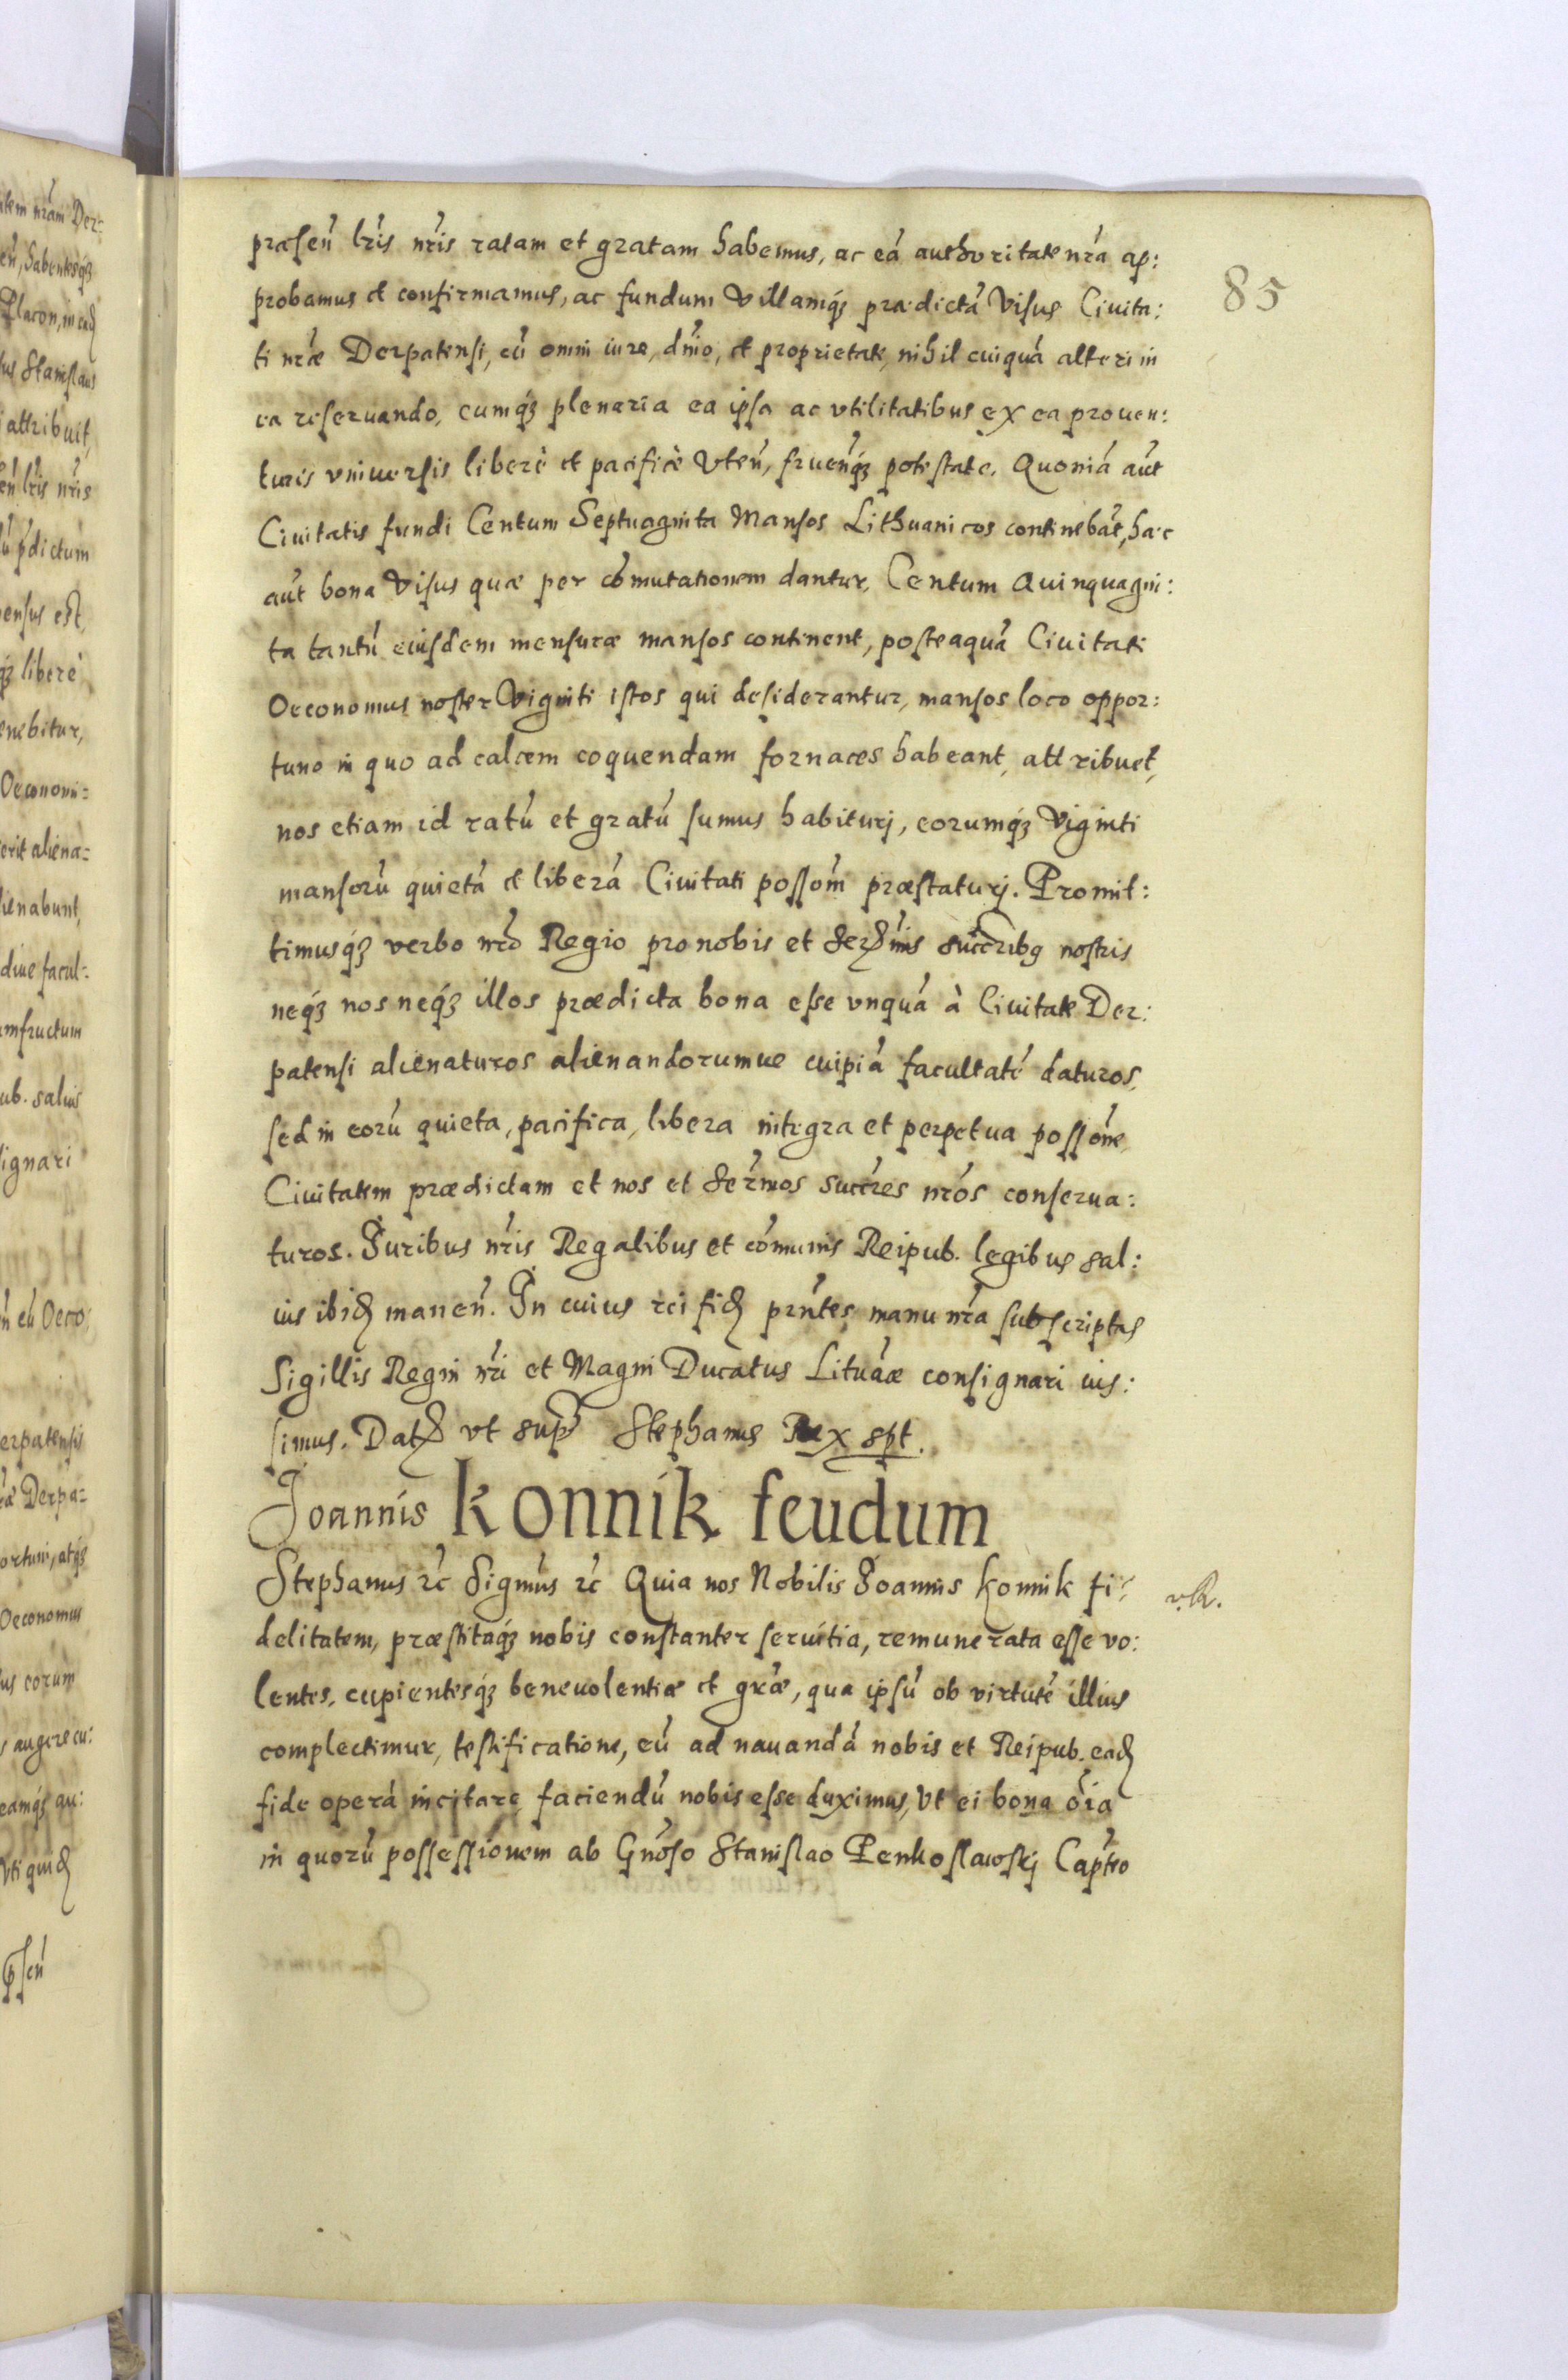 85
præsen̄ lr̄is nr̄is ratam et gratam habemus, ac eā authoritate nr̄a ap:
probamus et confirmamus, ac fundum Villamq́ꝫ prædictā Visus Ciuita:
ti nr̄æ Derpatensi, cū omni iure, dn̄io, et proprietate, nihil cuiquā alteri in
ea reseruando, cumq́ꝫ plenaria ea ipsa ac vtilitatibus ex ea prouen:
turis vniuersis liberè et pacificè Vten̄, fruen̄q́ꝫ potestate. Quoniā aūt
Ciuitatis fundi Centum Septuaginta Mansos Lithuanicos continebāt, hæc
aūt bona Visus quæ per cōmutationem dantur, Centum Quinquagin:
ta tantū eiusdem mensuræ mansos continent, posteaquā Ciuitati
Oeconomus noster Viginti istos qui desiderantur, mansos loco oppor:
tuno in quo ad calcem coquendam fornaces habeant, attribuet,
nos etiam id ratū et gratū sumus habiturj, eorumq́ꝫ Viginti
mansorū quietā et liberā Ciuitati possōm præstaturj. Promit:
timusq́ꝫ verbo nr̄o Regio pro nobis et Serꝫmis succribꝫ nostris
neq́ꝫ nos neq́ꝫ illos prædicta bona esse vnquā à Ciuitate Der:
patensi alienaturos alienandorumue cuipiā facultatē daturos,
sed in eorū quieta, pacifica, libera integra et perpetua possōne,
Ciuitatem prædictam et nos et Ser̄mos succr̄es nr̄os conserua:
turos. Juribus nr̄is Regalibus et cōmunis Reipub. legibus sal:
uis ibidꝫ manen̄. In cuius rei fidꝫ prn̄tes manu nr̄a subscriptas
Sigillis Regni nr̄i et Magni Ducatus Lituāæ consignari ius:
simus. Datꝫ vt sup̄ Stephanus Rex spt.
Joannis konnik feudum
Stephanus ꝛc̄ Sigmūs ꝛc̄ Quia nos Nobilis Joannis konnik fi:
delitatem, præstitaq́ꝫ nobis constanter seruitia, remunerata esse vo:
lentes, cupientesq́ꝫ beneuolentiæ et gr̄æ, qua ipsū ob virtutē illius
complectimur, testificatione, eū ad nauandā nobis et Reipub. eadꝫ
fide operā incitare faciendū nobis esse duximus, Vt ei bona ōia
in quorū possessionem ab Gn̄oso Stanislao Penkoslawskj Capn̄eo